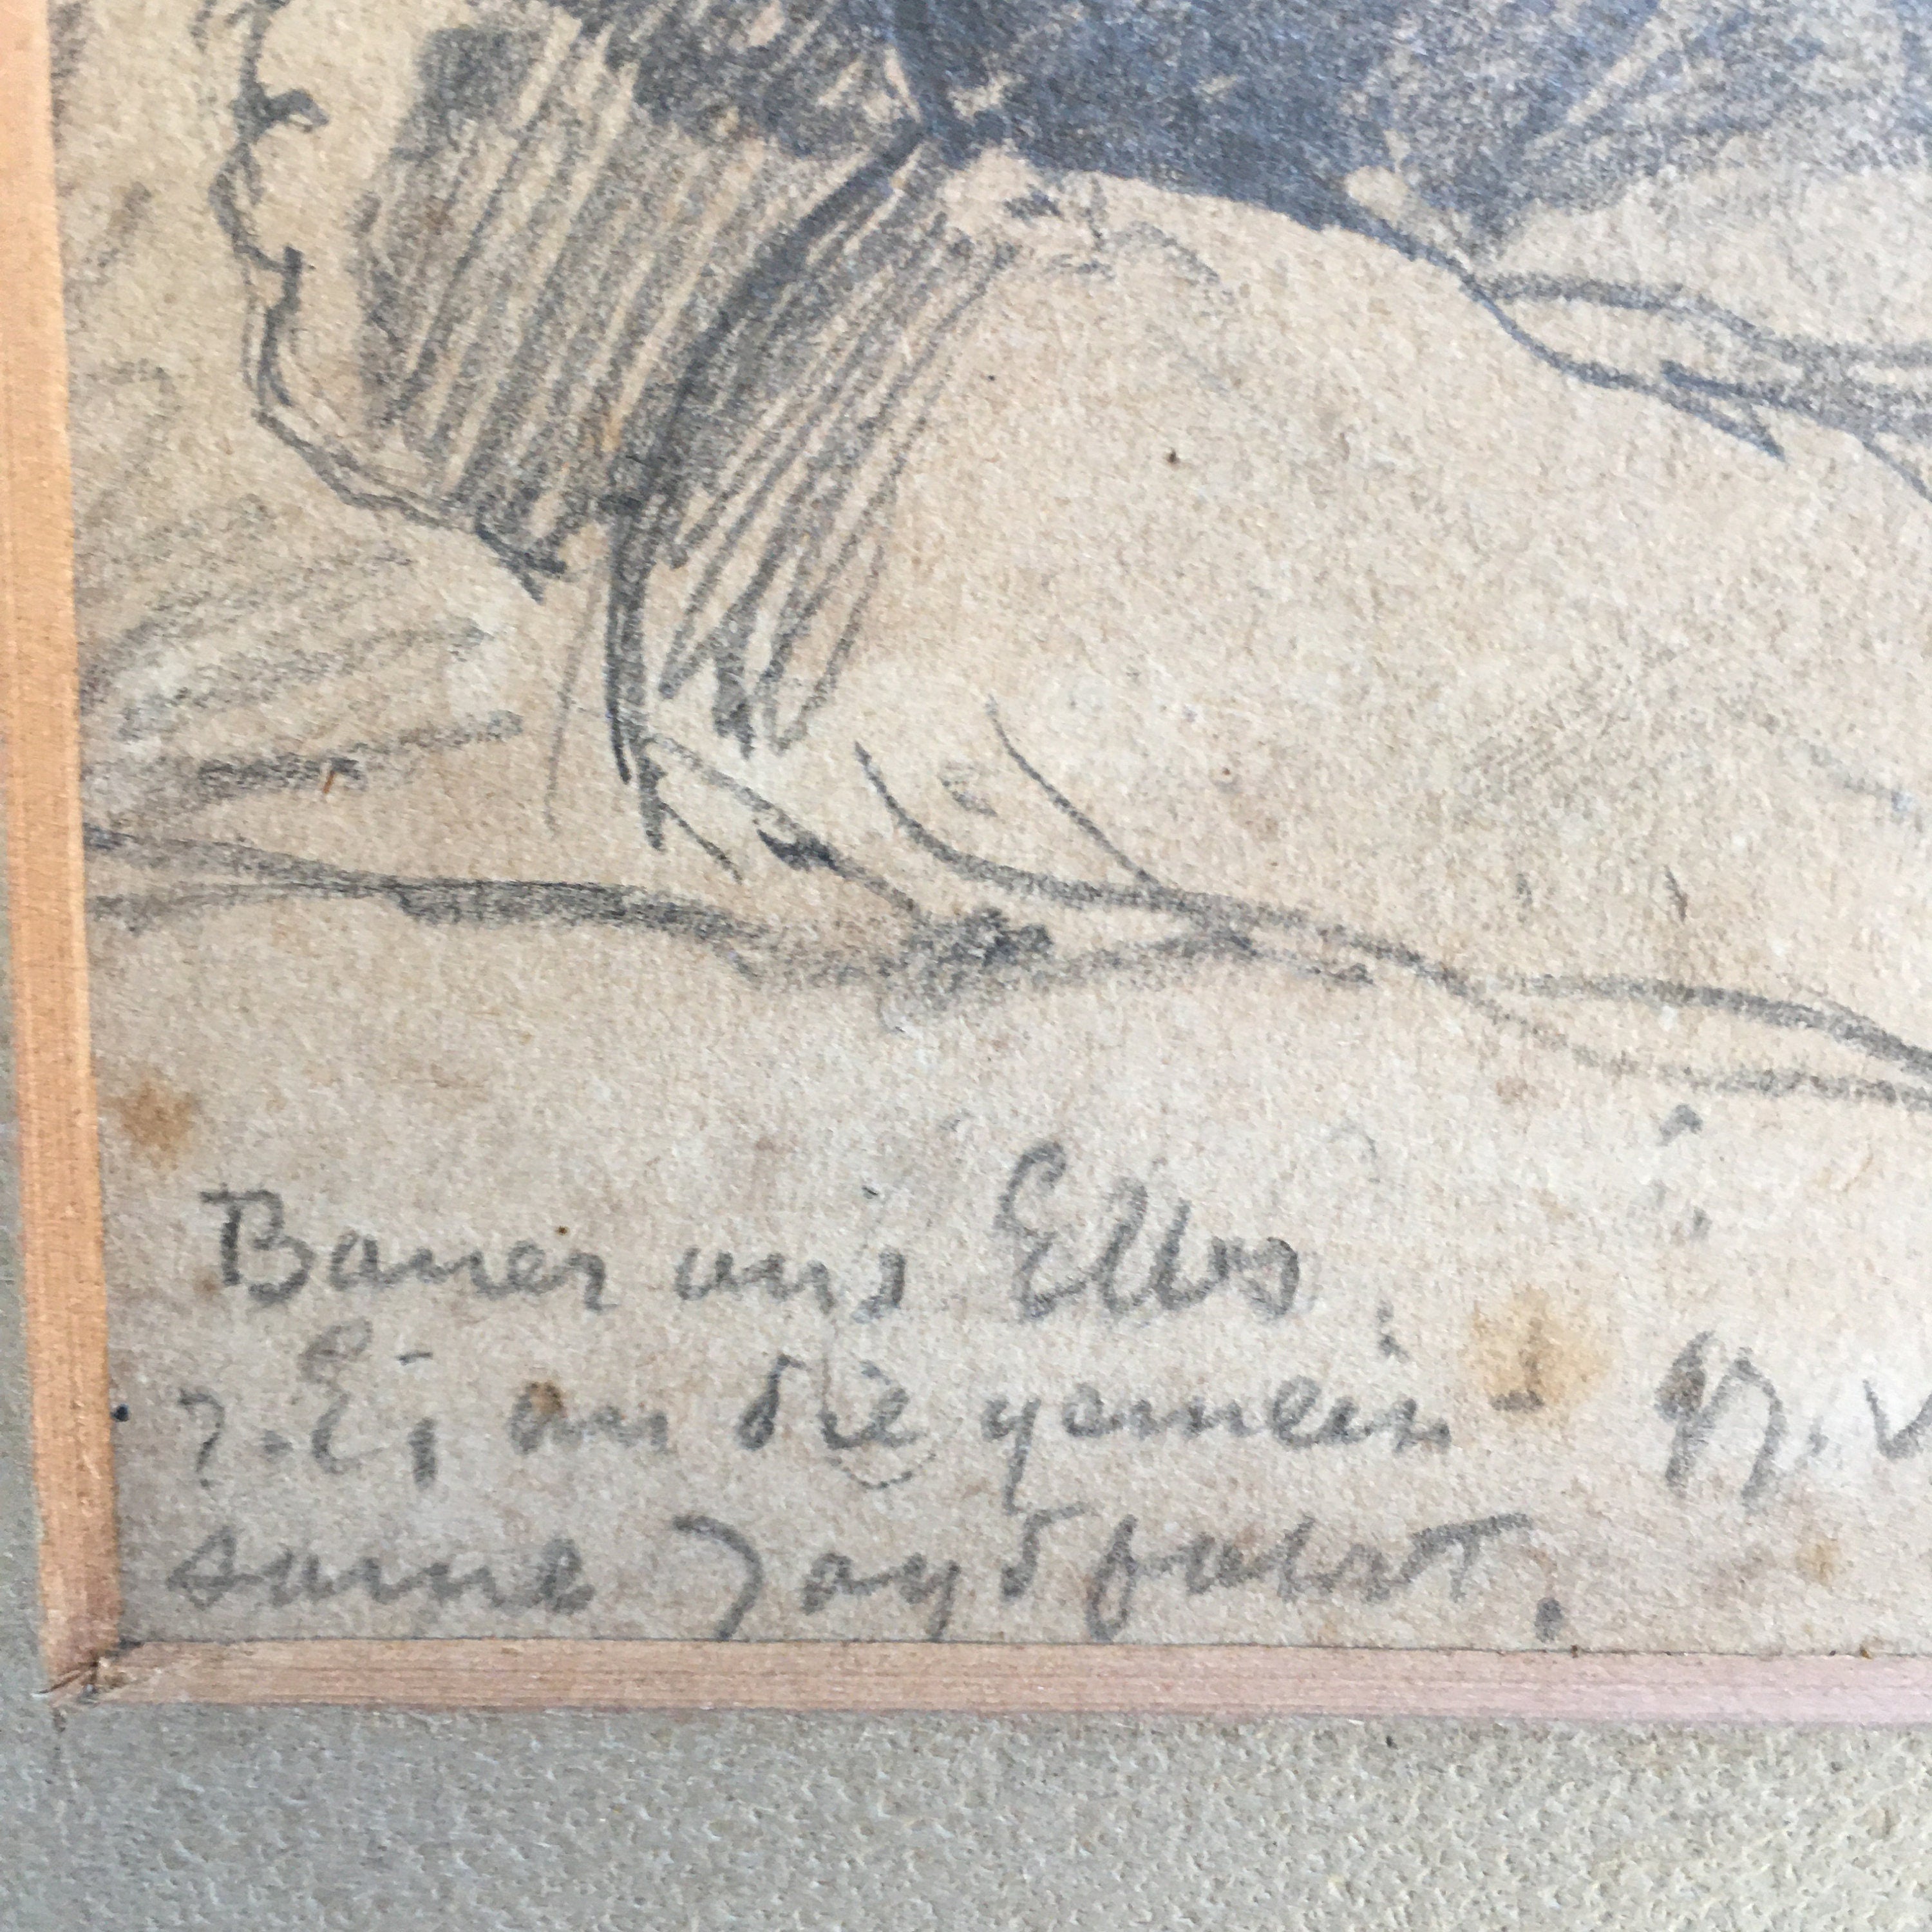 Bauer aus Ellos.
z. E. an die gemein-
same Jagdfahrt.